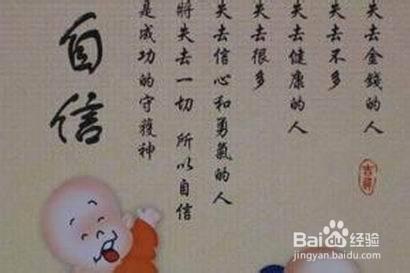 失去金錢的人
失去不多
失去健康的人
失去很多
失去信心和勇氣的人
將失去一切 所以自信
是成功的守護神
自信
吉祥
Bai 经验
jingyan.baidu.com